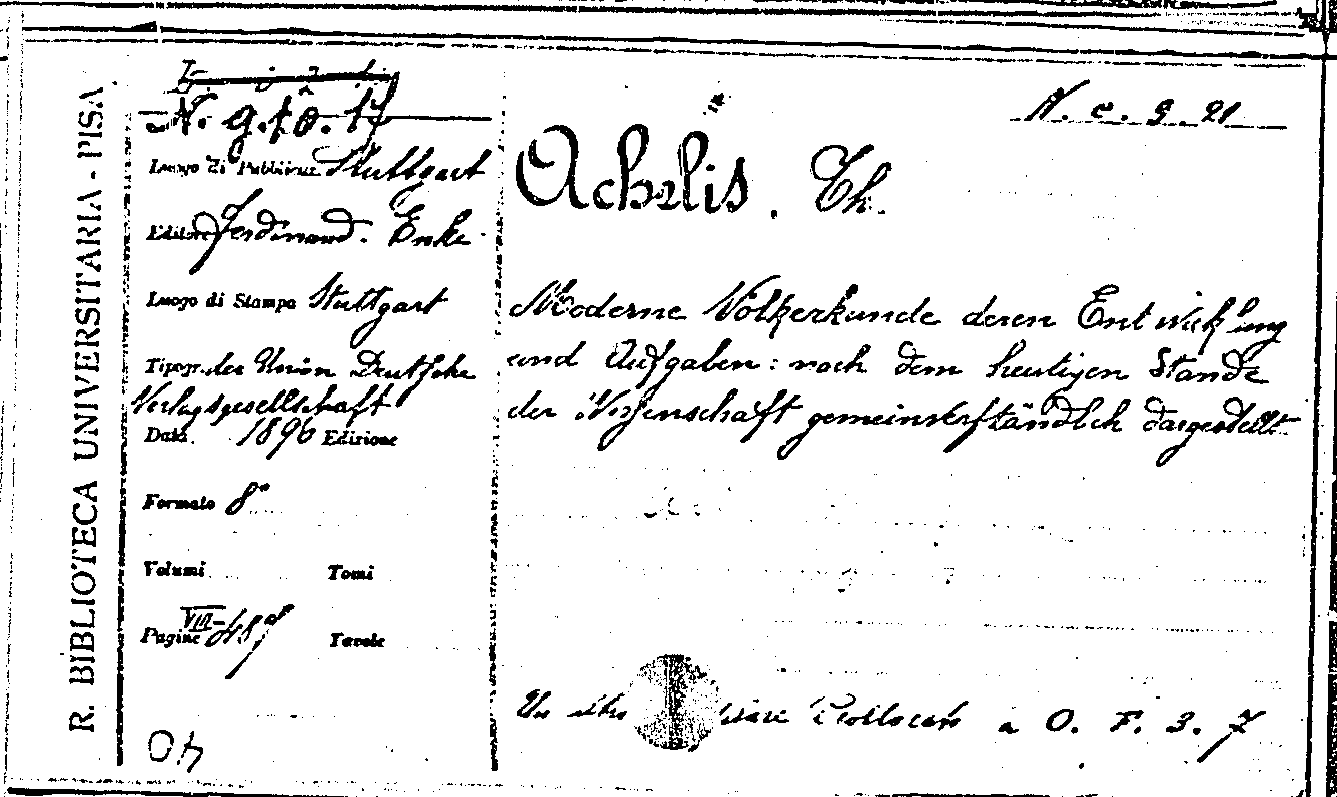 R. BIBLIOTECA UNIVERSITARIA - PISA
N. g. 10. 17
Luogo di Pubblicaz. Stuttgart
Editore Ferdinand. Enke
Luogo di Stampa Stuttgart
Tipogr. der Union Deutsche
Verlagsgesellschaft
Data 1896 Edizione
Formato 8°
Volumi Tomi
Pagine VIII-487 Tavole
N. c. 9. 21
Achelis. Th.
Moderne Völkerkunde deren Entwicklung
und Aufgaben: nach dem heutigen Stande
der Wissenschaft gemeinverständlich dargestellt
Un altro a O. F. 3. 7